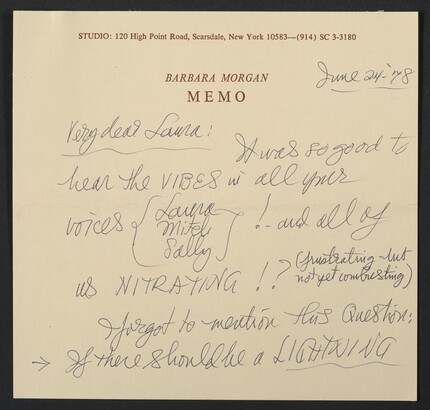 STUDIO: 120 High Point Road, Scarsdale, New York 10583—(914) SC 3-3180
June 24 - '78
BARBARA MORGAN
MEMO
Very dear Laura:
It was so good to
hear the VIBES in all your
voices { Laura
Mitch
Sally } ! - and all of
us NITRATING !? (frustrating but
not yet combusting)
I forgot to mention this Question:
→ If there should be a LIGHTNING